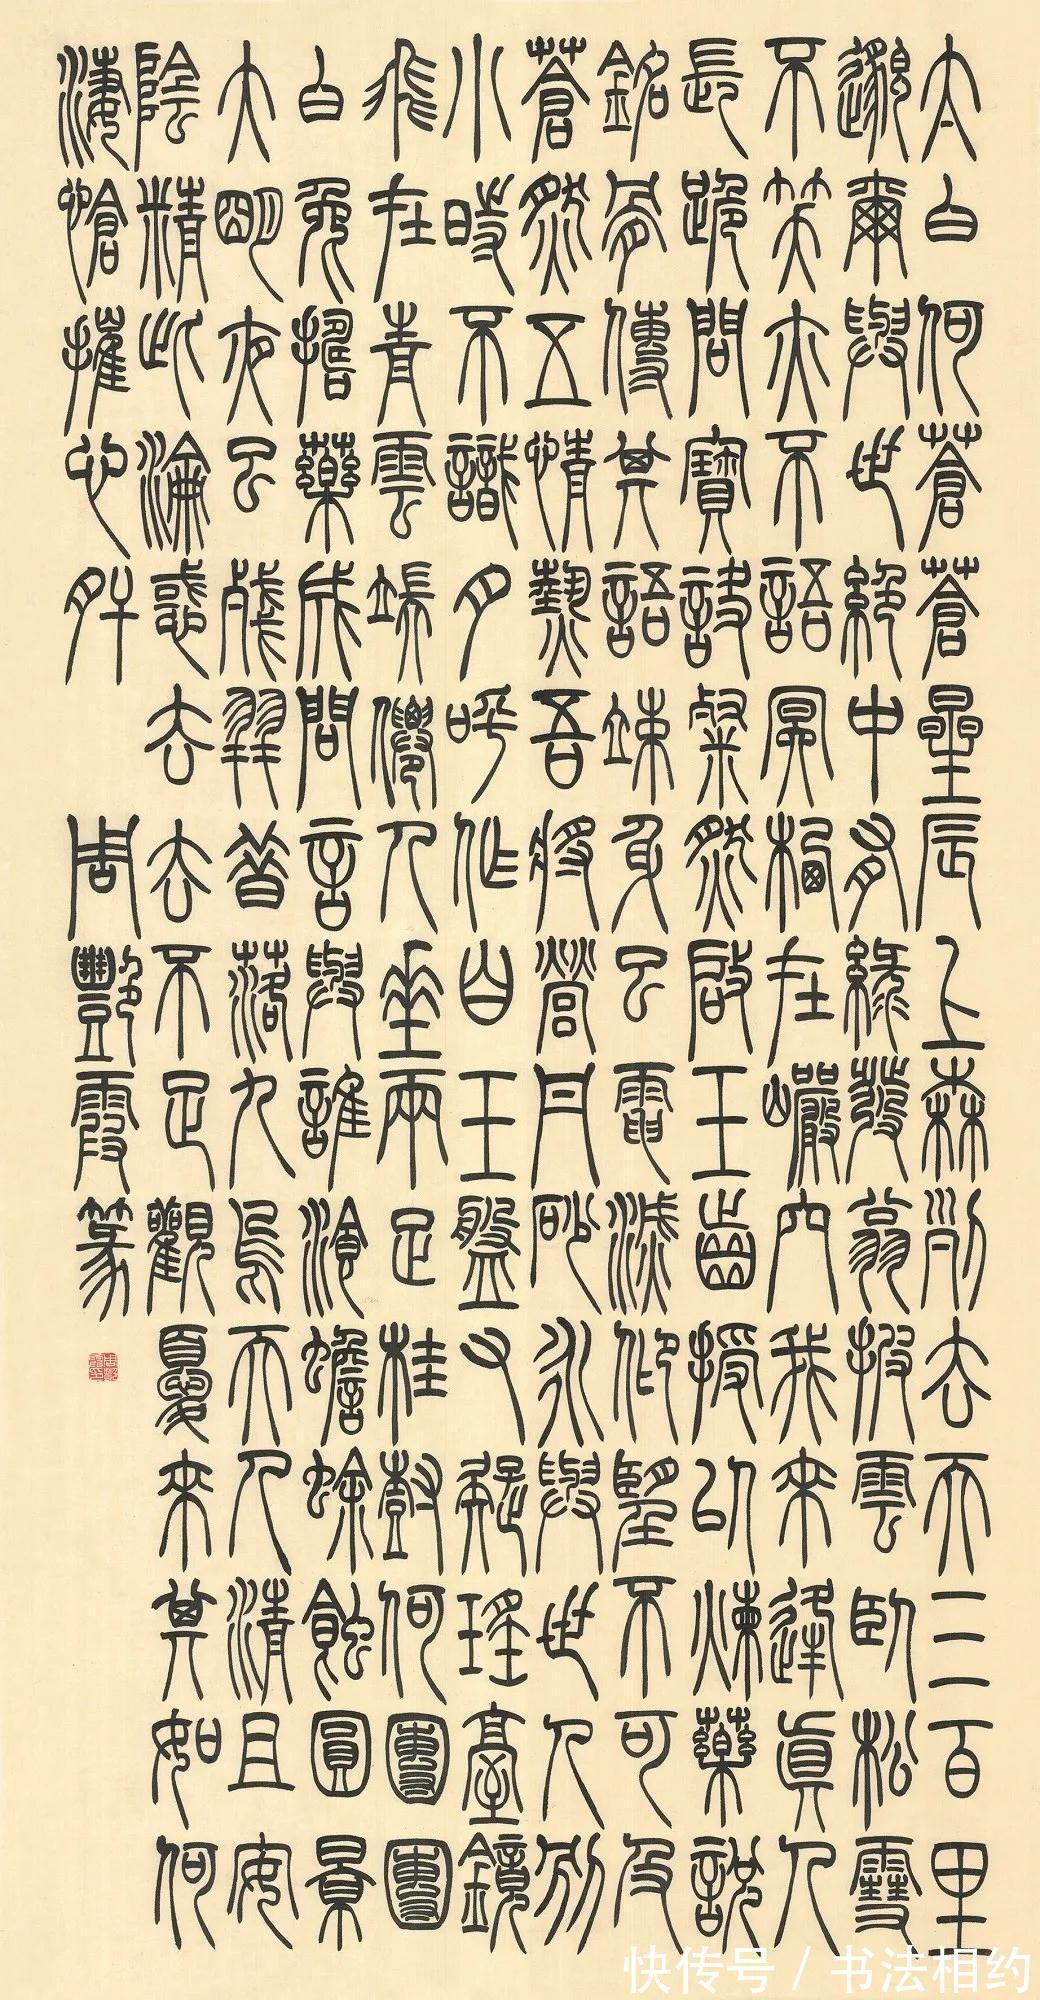 太白何蒼蒼星辰上森列去天三百里
邈爾與世絕中有綠髮翁披雲臥松雪
不笑亦不語冥棲在巖穴我來逢真人
長跪問寶訣粲然啟玉齒授以煉藥說
銘骨傳其語竦身已電滅仰望不可及
蒼然五情熱吾將營丹砂永與世人別
小時不識月呼作白玉盤又疑瑤臺鏡
飛在青雲端僊人垂兩足桂樹何團團
白兔擣藥成問言與誰湌蟾蜍蝕圓景
大明夜已殘羿昔落九烏天人清且安
陰精此淪惑去去不足觀憂來其如何
淒愴摧心肝
周艷霞篆
快传号 / 书法相约